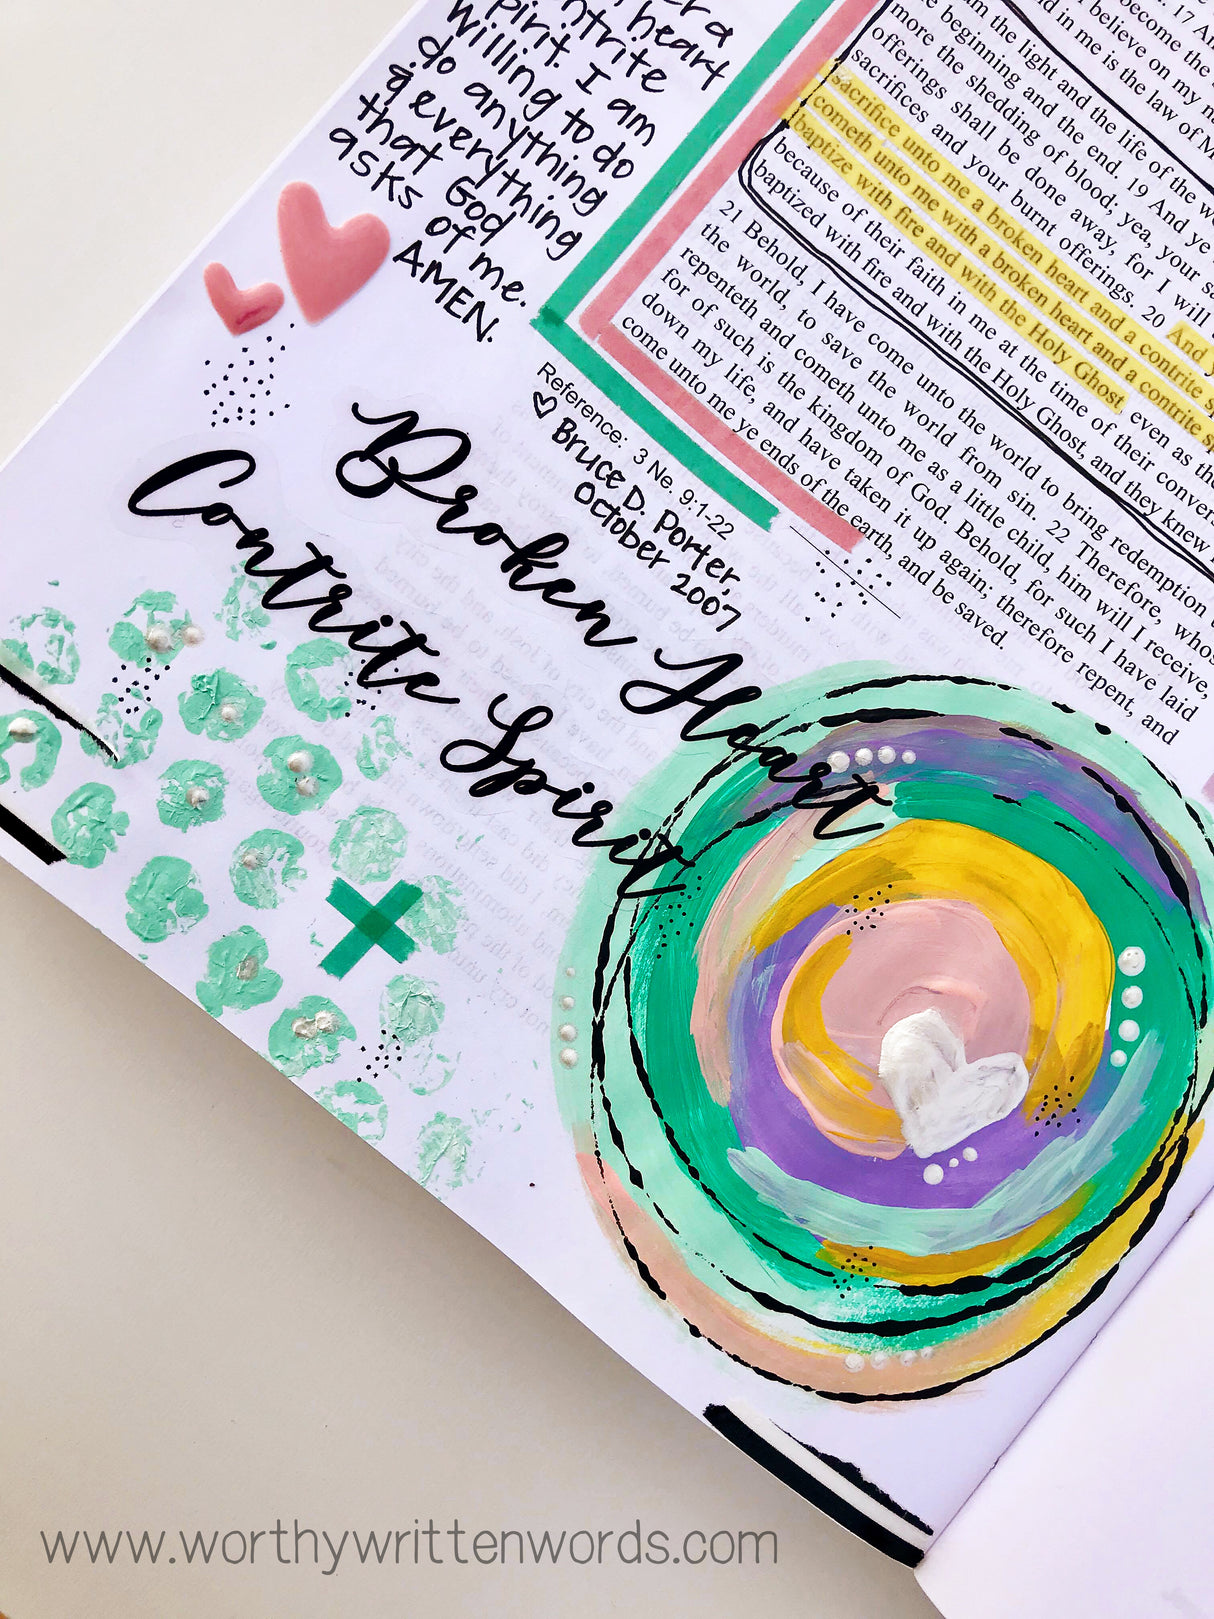 er a
heart
ntrite
pirit. I am
willing to do
do anything
& everything
that God
asks of me.
AMEN.
Reference: 3 Ne. 9:1-22
Bruce D. Porter,
October 2007
Broken Heart
Contrite Spirit
17 An
become the
believe on my n
d in me is the law of M
am the light and the life of the wo
he beginning and the end. 19 And ye
more the shedding of blood; yea, your sa
offerings shall be done away, for I will
sacrifices and your burnt offerings. 20 And y
sacrifice unto me a broken heart and a contrite s
cometh unto me with a broken heart and a contrite sp
baptize with fire and with the Holy Ghost, even as the
because of their faith in me at the time of their convers
baptized with fire and with the Holy Ghost, and they knew i
21 Behold, I have come unto the world to bring redemption u
the world, to save the world from sin. 22 Therefore, whos
repenteth and cometh unto me as a little child, him will I receive,
for of such is the kingdom of God. Behold, for such I have laid
down my life, and have taken it up again; therefore repent, and
come unto me ye ends of the earth, and be saved.
www.worthywrittenwords.com